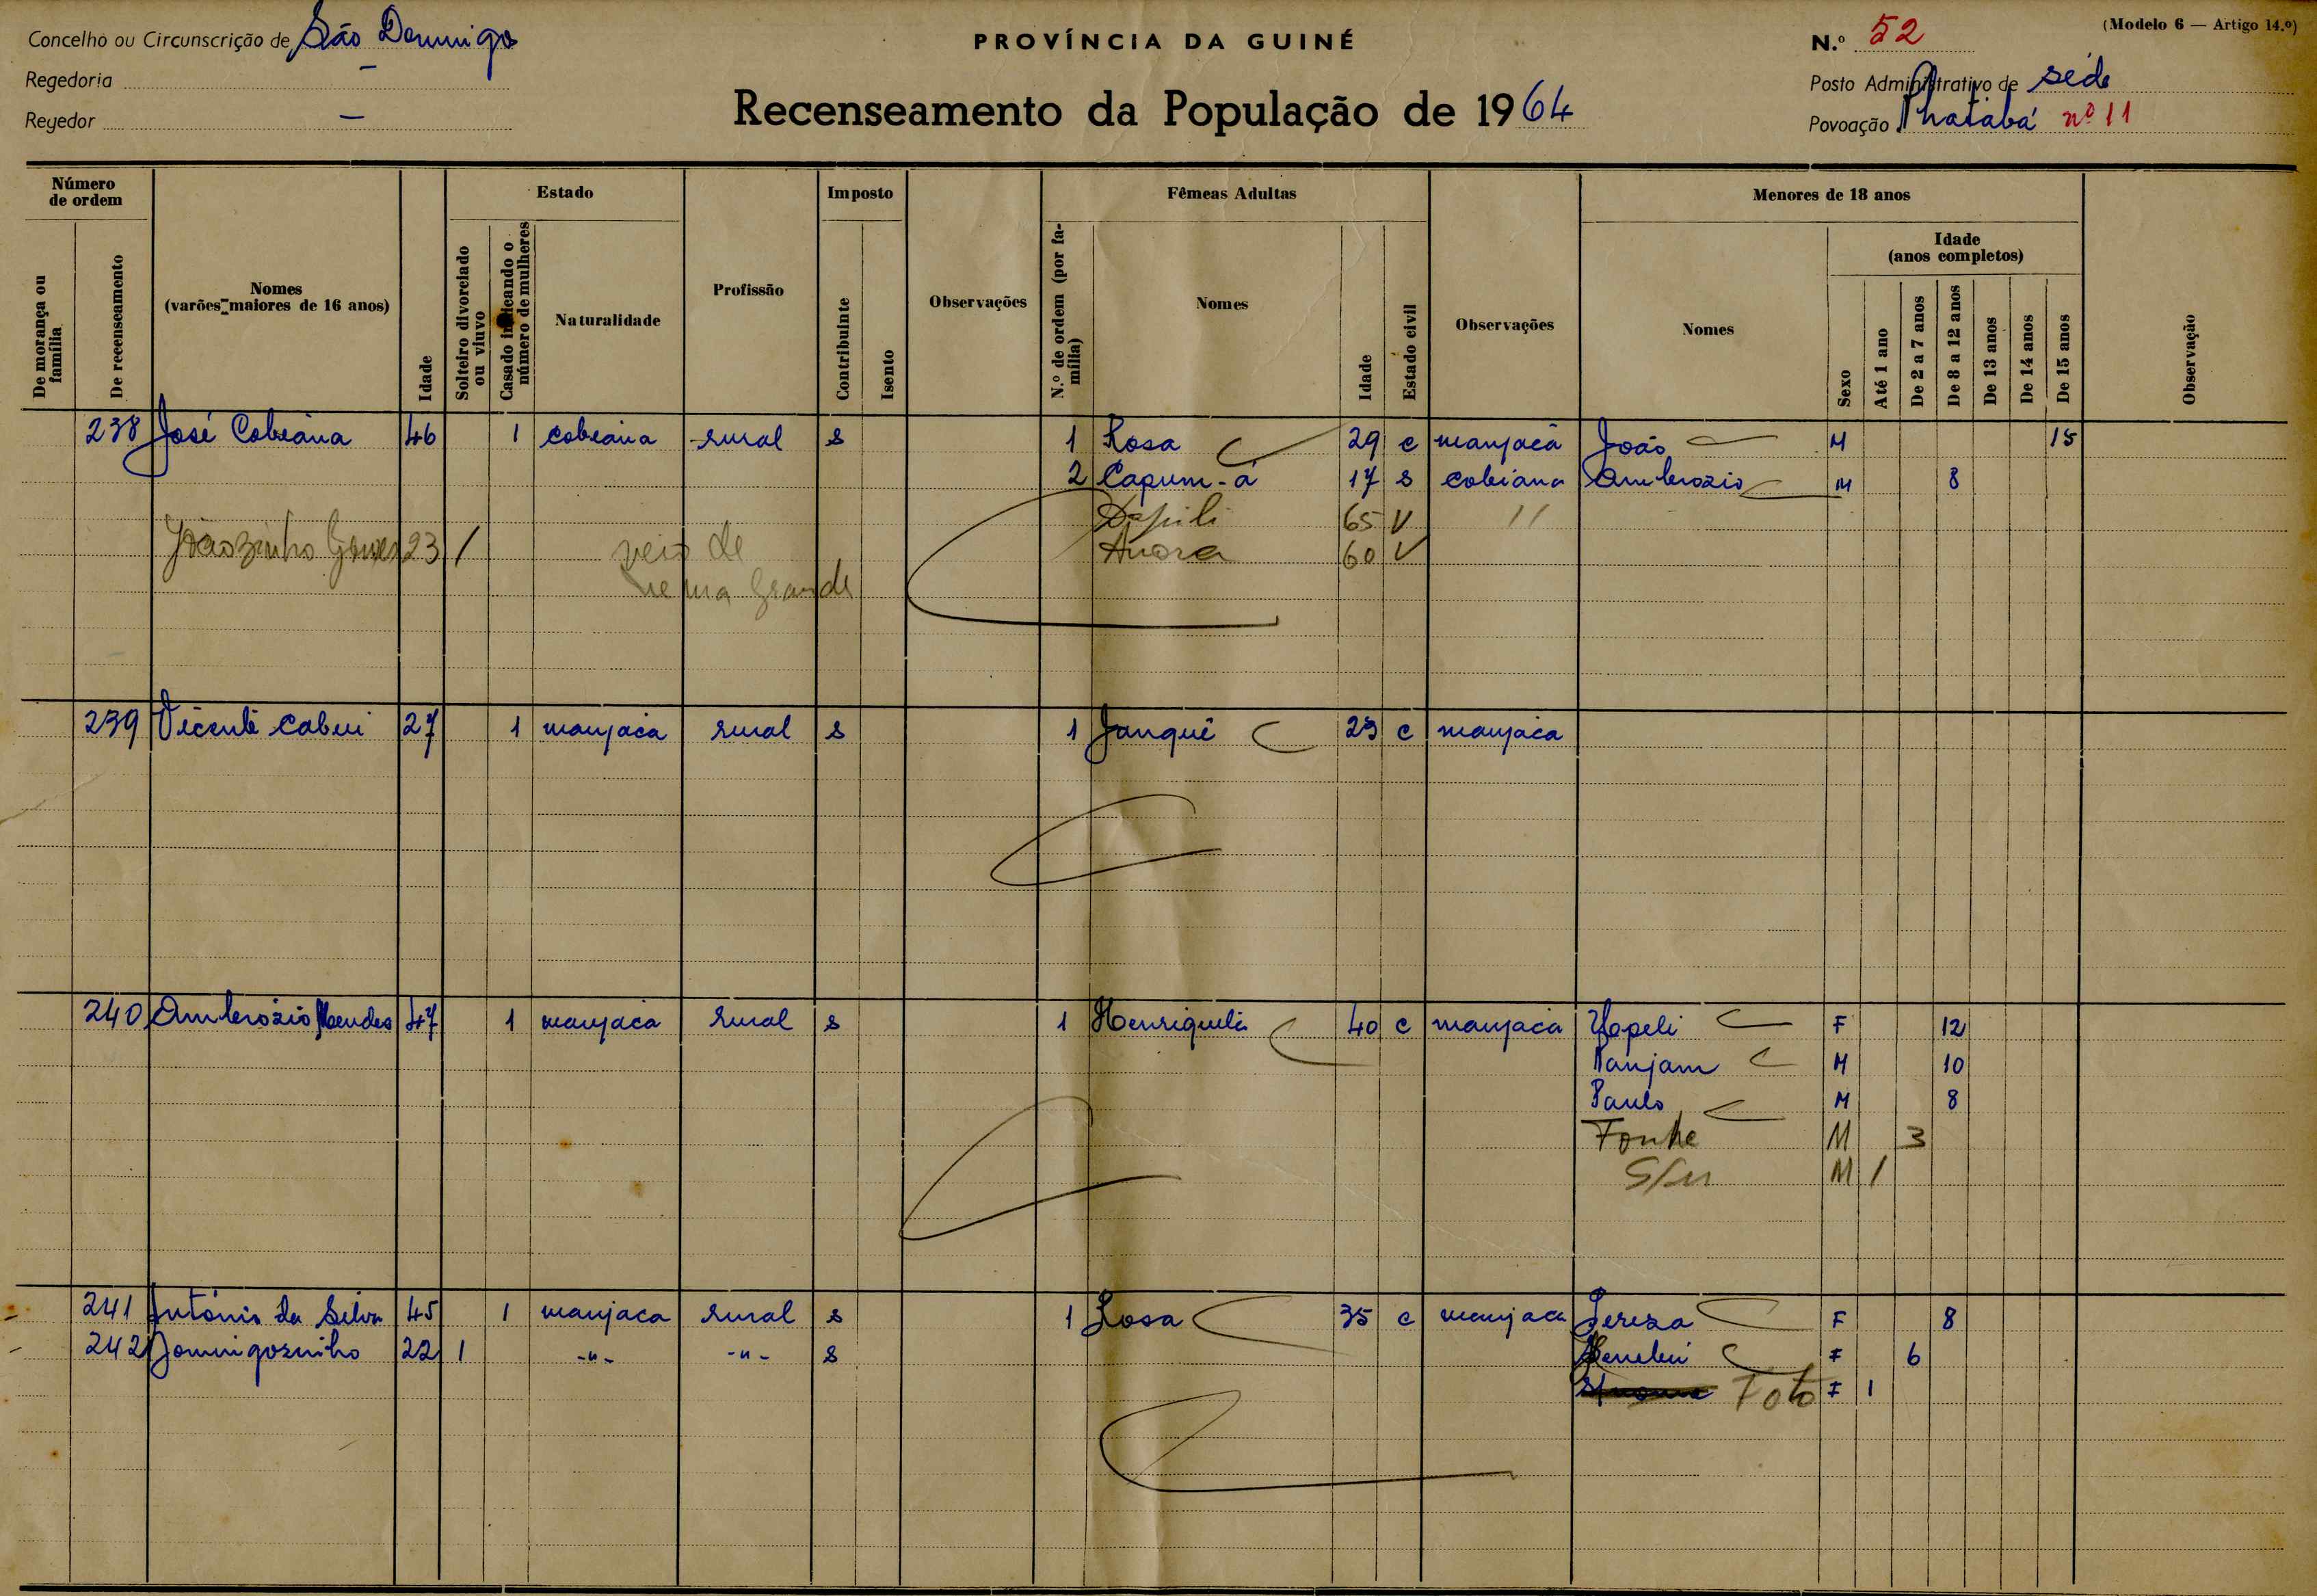 Concelho ou Circunscrição de São Domingos
PROVÍNCIA DA GUINÉ
N.º 52
(Modelo 6 — Artigo 14.º)
Regedoria —
Recenseamento da População de 1964
Posto Administrativo de sede
Regedor —
Povoação nº 11
Número de ordem
De morança ou família
De recenseamento
Nomes (varões maiores de 16 anos)
Idade
Estado
Solteiro divorciado ou viuvo
Casado indicando o número de mulheres
Naturalidade
Profissão
Imposto
Contribuinte
Isento
Observações
Fêmeas Adultas
N.º de ordem (por família)
Nomes
Idade
Estado civil
Observações
Menores de 18 anos
Nomes
Idade (anos completos)
Sexo
Até 1 ano
De 2 a 7 anos
De 8 a 12 anos
De 13 anos
De 14 anos
De 15 anos
Observação
238 José Cobiana 46 1 cobiana rural s 1 Rosa 29 c manjaca João M 15
2 Capum-á 17 s cobiana Ambrozio M 8
65 V "
Joãozinho Gomes 23 1 veio de Anora 60 V
Grande
239 Vicente Cabui 27 1 manjaca rural s 1 Janquê 23 c manjaca
240 Ambrózio Mendes 47 1 manjaca rural s 1 Henriqueta 40 c manjaca Yopeli F 12
Nanjam M 10
Paulo M 8
Fonhe M 3
S/n M 1
241 António da Silva 45 1 manjaca rural s 1 Rosa 35 c manjaca Tereza F 8
242 Domingozinho 22 1 -"- -"- s F 6
Toto F 1